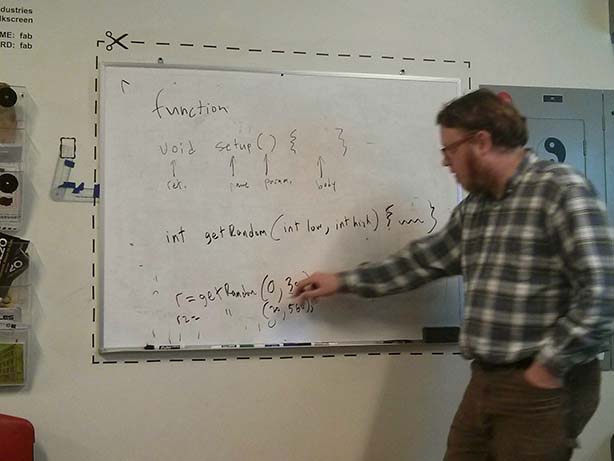 dustries
lkscreen
ME: fab
RD: fab
function
void setup() { }
ret. name param. body
int getRandom(int low, int high) { ... }
r = getRandom(0, 30
r2 = " ( , 500);
0